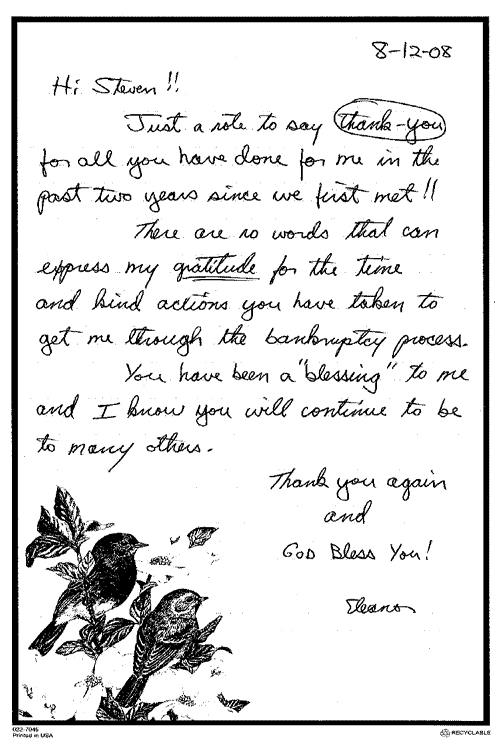 8-12-08
Hi Steven!!
Just a note to say thank-you
for all you have done for me in the
past two years since we first met!!
There are no words that can
express my gratitude for the time
and kind actions you have taken to
get me through the bankruptcy process.
You have been a "blessing" to me
and I know you will continue to be
to many others.
Thank you again
and
God Bless You!
Eleanor
022-7046
Printed in USA
RECYCLABLE